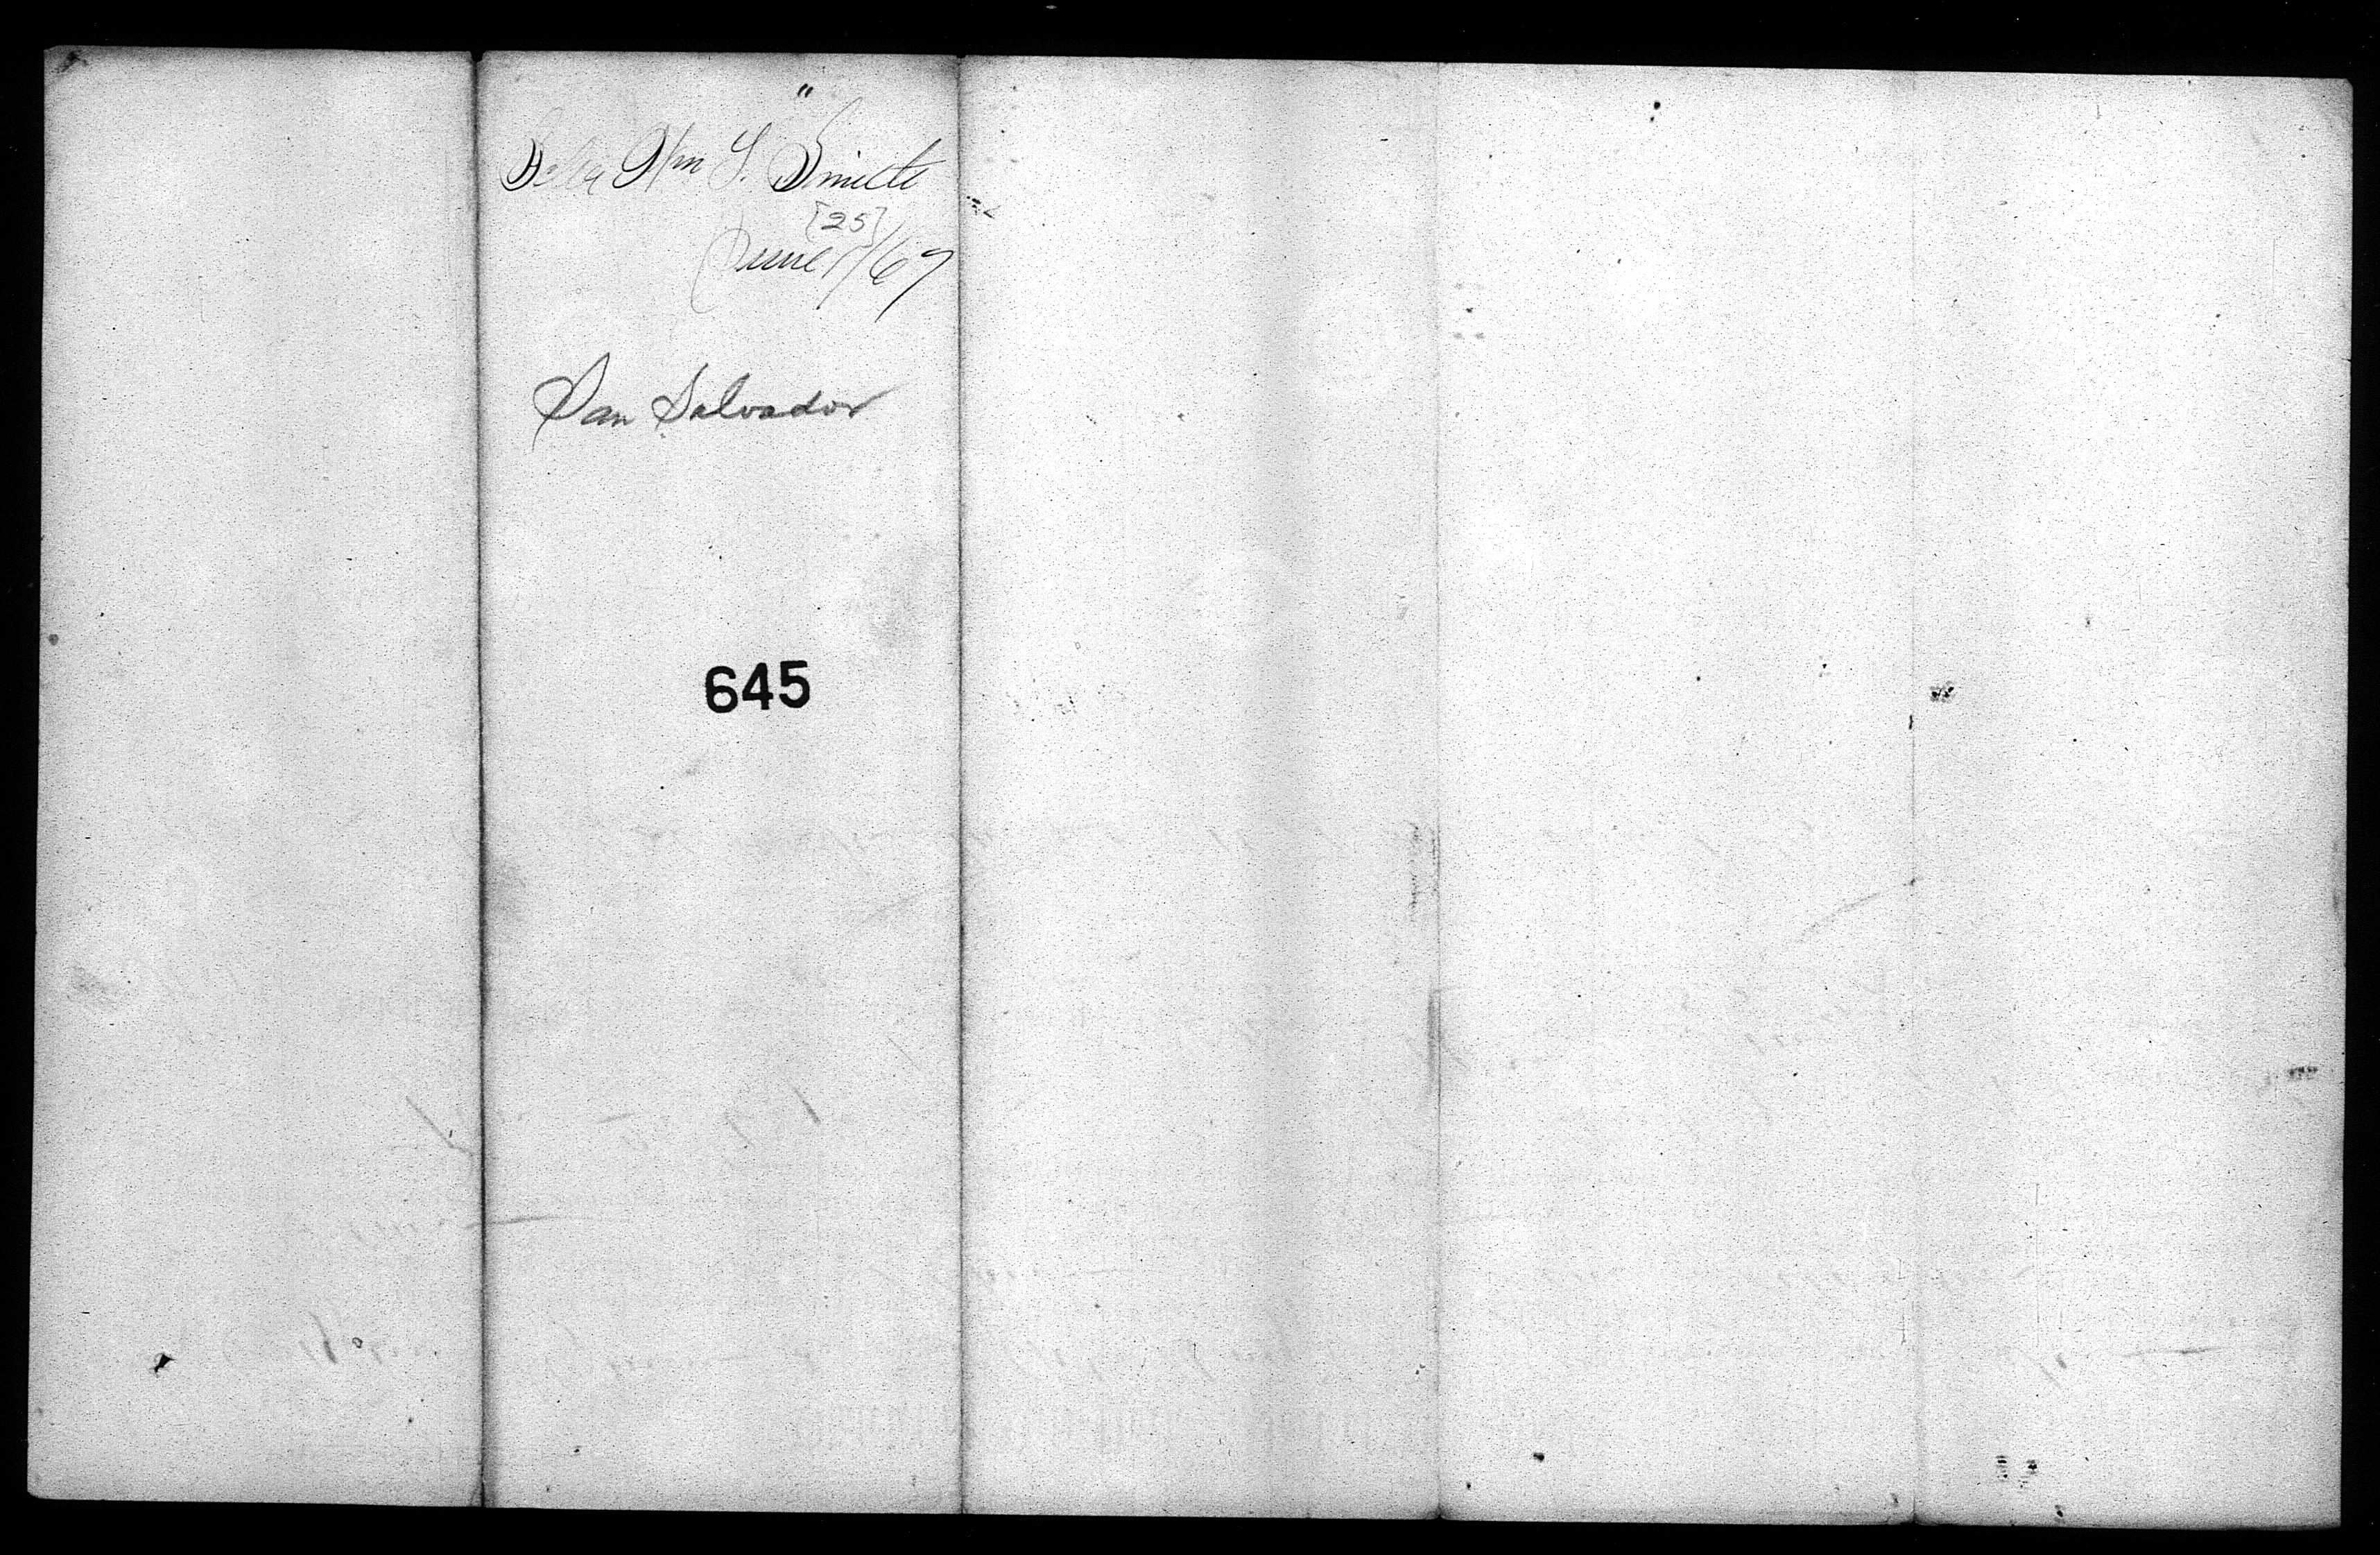 "
Wm S. Smith
[25]
June /67
San Salvador
645